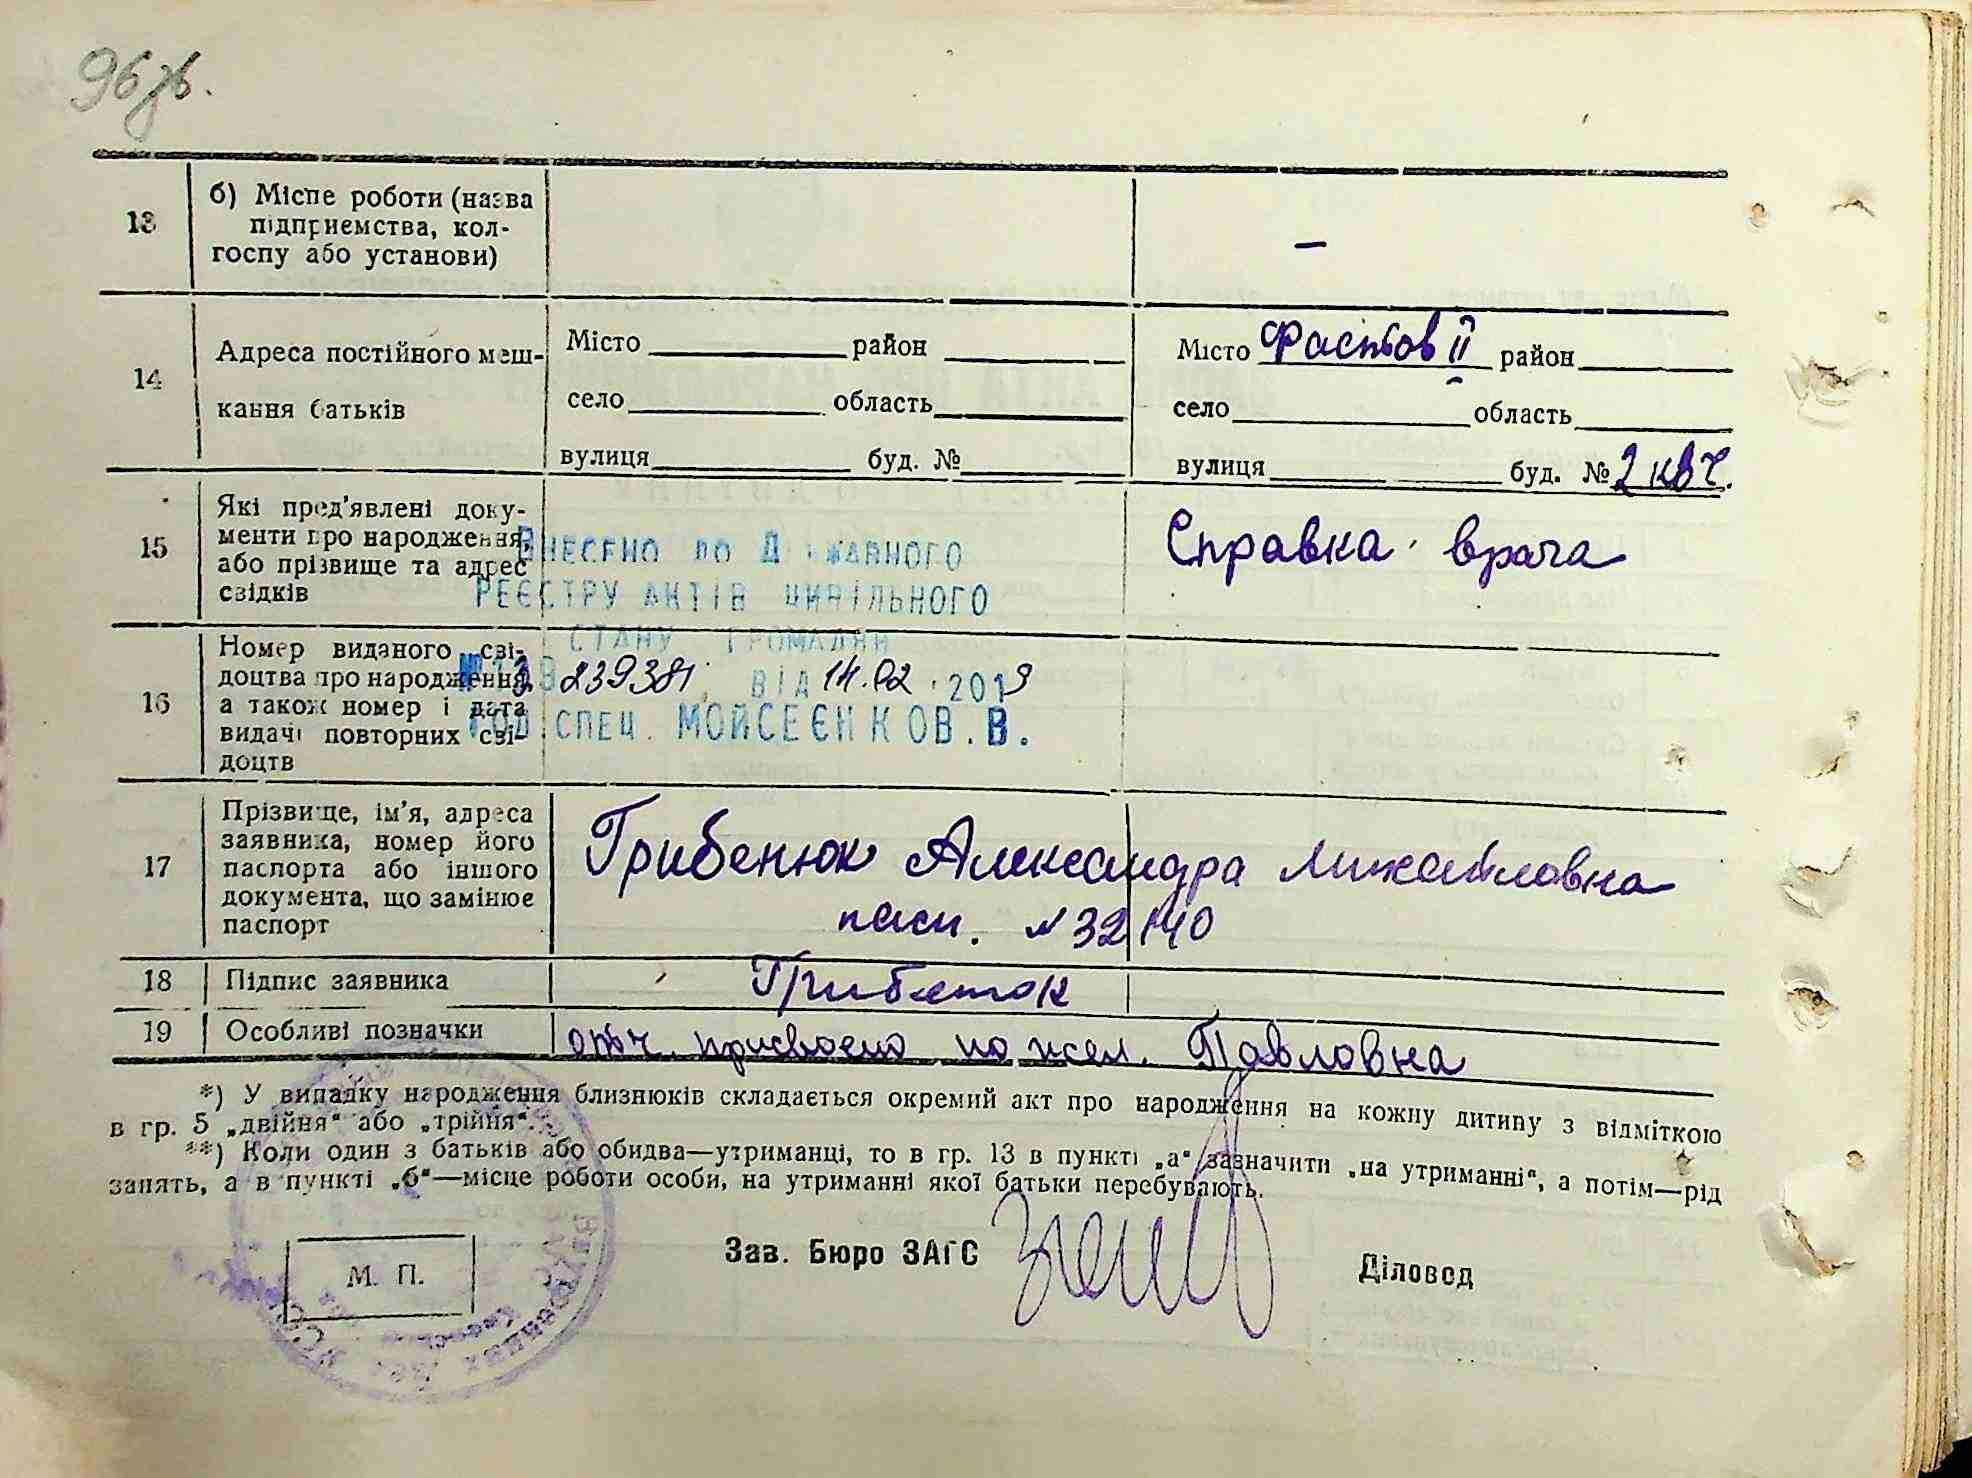 96 зв.
13
б) Місце роботи (назва
підприємства, кол-
госпу або установи)
–
14
Адреса постійного меш-
кання батьків
Місто район
село область
вулиця буд. №
Місто Фастов II район
село область
вулиця буд. № 2 кв 7.
15
Які пред'явлені доку-
менти про народження,
або прізвище та адрес
свідків
Справка врача
ВНЕСЕНО ДО ДЕРЖАВНОГО
РЕЄСТРУ АКТІВ ЦИВІЛЬНОГО
СТАНУ ГРОМАДЯН
239381 ВІД 14.02.2019
СПЕЦ. МОЙСЕЄНКО В. В.
16
Номер виданого сві-
доцтва про народження,
а також номер і дата
видачі повторних сві-
доцтв
17
Прізвище, ім'я, адреса
заявника, номер його
паспорта або іншого
документа, що замінює
паспорт
Грибенюк Александра Михайловна
пасп. № 32140
18
Підпис заявника
Грибенюк
19
Особливі позначки
отч. присвоено по жел. Павловна
*) У випадку народження близнюків складається окремий акт про народження на кожну дитину з відміткою
в гр. 5 „двійня“ або „трійня“.
**) Коли один з батьків або обидва—утриманці, то в гр. 13 в пункті „а“ зазначити „на утриманні“, а потім—рід
занять, а в пункті „б“—місце роботи особи, на утриманні якої батьки перебувають.
М. П.
Зав. Бюро ЗАГС
Діловод